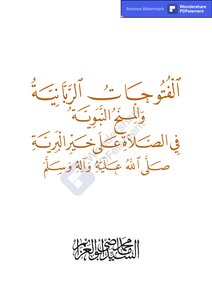 Remove Watermark
Wondershare
PDFelement
الْفُتُوحَاتُ الرَّبَّانِيَّةُ
وَالْمِنَحُ النَّبَوِيَّةُ
فِي الصَّلَاةِ عَلَى خَيْرِ الْبَرِيَّةِ
صَلَّى اللهُ عَلَيْهِ وَآلِهِ وَسَلَّمَ
السيد محمد أبو العزايم